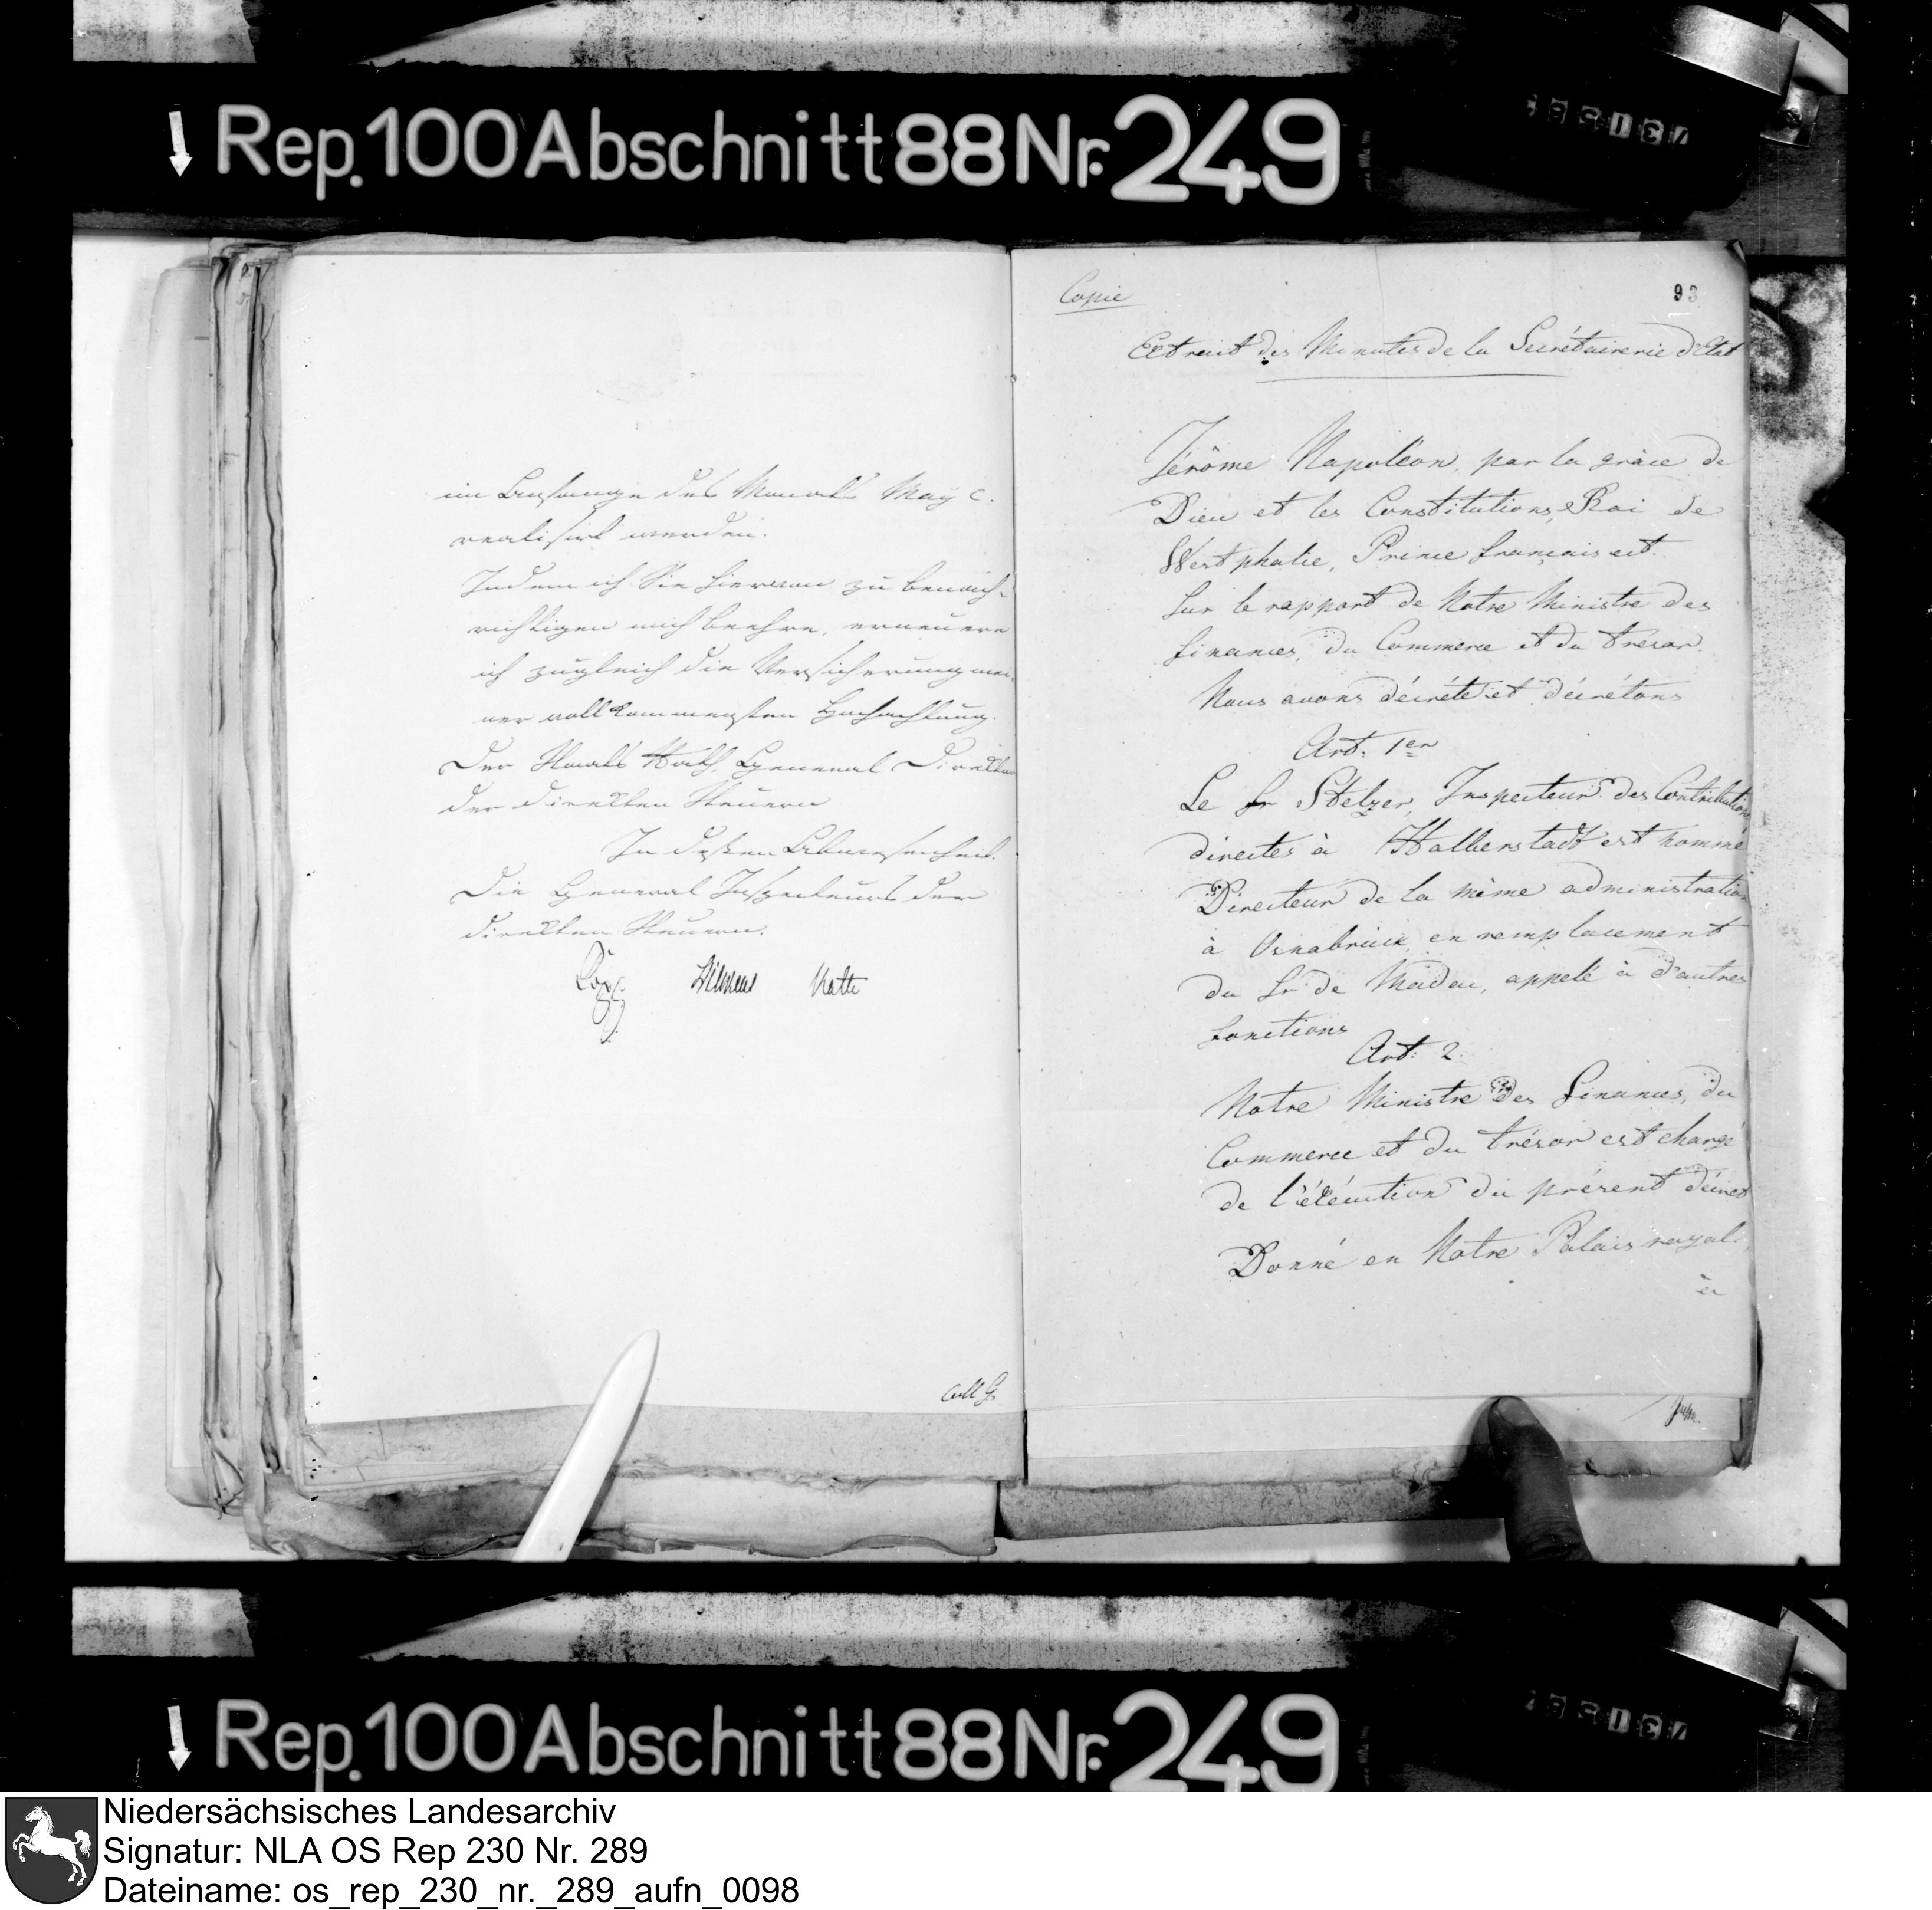 Rep. 100 Abschnitt 88 Nr. 249
im Anfange des Monats May c.
realisirt werden.
Indem ich Sie hiervon zu benach-
richtigen mich beehre, erneuere
ich zugleich die Versicherung mei-
ner vollkommensten Hochachtung.
Der Staats Rath, General Direktor
der direkten Steuern
In dessen Abwesenheit
Die General Inspecteurs der
direkten Steuern.
Copie
93
Extrait des Minutes de la Secrétairerie d'Etat
Jérôme Napoléon, par la grâce de
Dieu et les Constitutions, Roi de
Westphalie, Prince français ect.
Sur le rapport de Notre Ministre des
finances, du Commerce et du trésor.
Nous avons décrété et décrétons
Art: 1er
Le Sr Stelzer, Inspecteur des Contributions
directes à Halberstadt est nommé
Directeur de la même administration
à Osnabruck, en remplacement
du Sr de Madai, appelé à d'autres
fonctions
Art: 2.
Notre Ministre des finances, du
Commerce et du trésor est chargé
de l'éxécution du présent décret
Donné en Notre Palais royal
à
Rep. 100 Abschnitt 88 Nr. 249
Niedersächsisches Landesarchiv
Signatur: NLA OS Rep 230 Nr. 289
Dateiname: os_rep_230_nr._289_aufn_0098